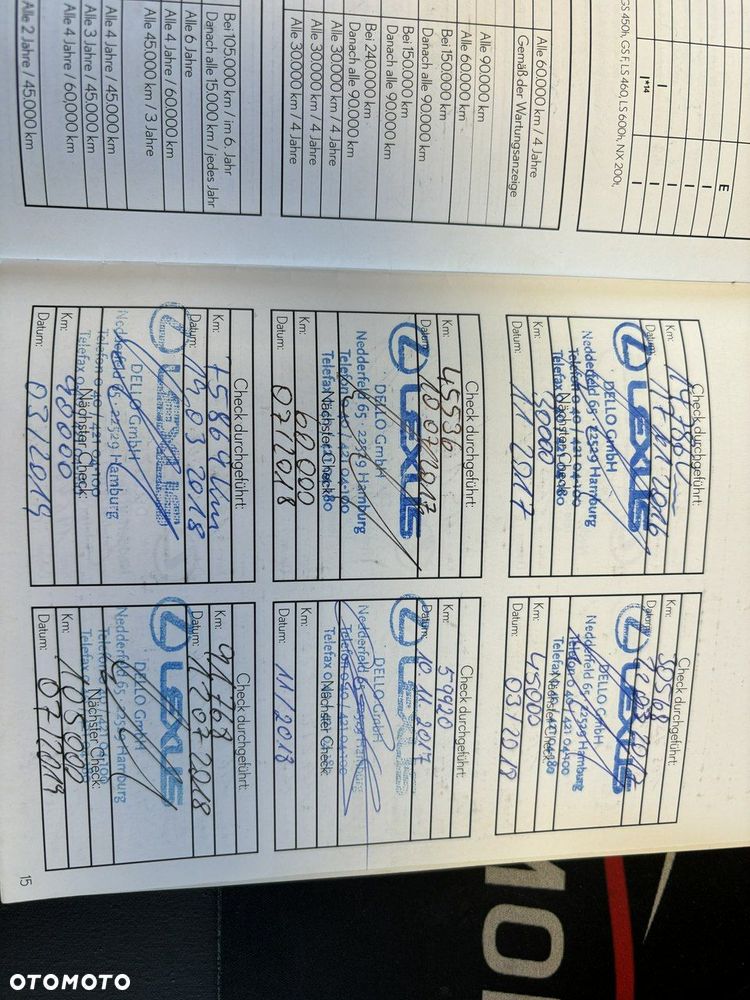 GS 450h, GS F, LS 460, LS 600h, NX 200t,
E
I
I
I
I
I*14
I
Alle 60.000 km / 4 Jahre
Gemäß der Wartungsanzeige
Alle 90.000 km
Alle 60.000 km
Bei 150.000 km
Danach alle 90.000 km
Bei 150.000 km
Danach alle 90.000 km
Bei 240.000 km
Danach alle 90.000 km
Alle 30.000 km / 4 Jahre
Alle 30.000 km / 4 Jahre
Alle 30.000 km / 4 Jahre
Bei 105.000 km / im 6. Jahr
Danach alle 15.000 km / jedes Jahr
Alle 6 Jahre
Alle 4 Jahre / 60.000 km
Alle 45.000 km / 3 Jahre
Alle 4 Jahre / 45.000 km
Alle 3 Jahre / 45.000 km
Alle 4 Jahre / 60.000 km
Alle 2 Jahre / 45.000 km
Check durchgeführt:
Km:
Datum: 11 2016
LEXUS
DELLO GmbH
Nedderfeld 65 · 22529 Hamburg
Telefon 0 40 / 421 04-00
Nächster Check:
30000
11 2017
Check durchgeführt:
Km: 30568
Datum:
LEXUS
DELLO GmbH
Nedderfeld 65 · 22529 Hamburg
Telefon 0 40 / 421 04-00
Nächster Check:
Km: 45000
Datum: 03/2018
Check durchgeführt:
Km: 45536
Datum: 10 07 2017
LEXUS
DELLO GmbH
Nedderfeld 65 · 22529 Hamburg
Telefon 0 40 / 421 04-00
Nächster Check:
Km: 60 000
Datum: 07/2018
Check durchgeführt:
Km: 59420
Datum: 10. 11. 2017
LEXUS
DELLO GmbH
Nedderfeld 65 · 22529 Hamburg
Telefon 0 40 / 421 04-00
Nächster Check:
Km:
Datum: 11/2018
Check durchgeführt:
Km: 75864 km
Datum: 03 2018
LEXUS
DELLO GmbH
Nedderfeld 65 · 22529 Hamburg
Telefon 0 40 / 421 04-100
Nächster Check:
Km: 90000
Datum: 03/2019
Check durchgeführt:
Km: 94768
Datum: 07 2018
LEXUS
DELLO GmbH
Nedderfeld 65 · 22529 Hamburg
Telefon 0 40 / 421 04-00
Nächster Check:
Km: 105 000
Datum: 07/2019
15
OTOMOTO